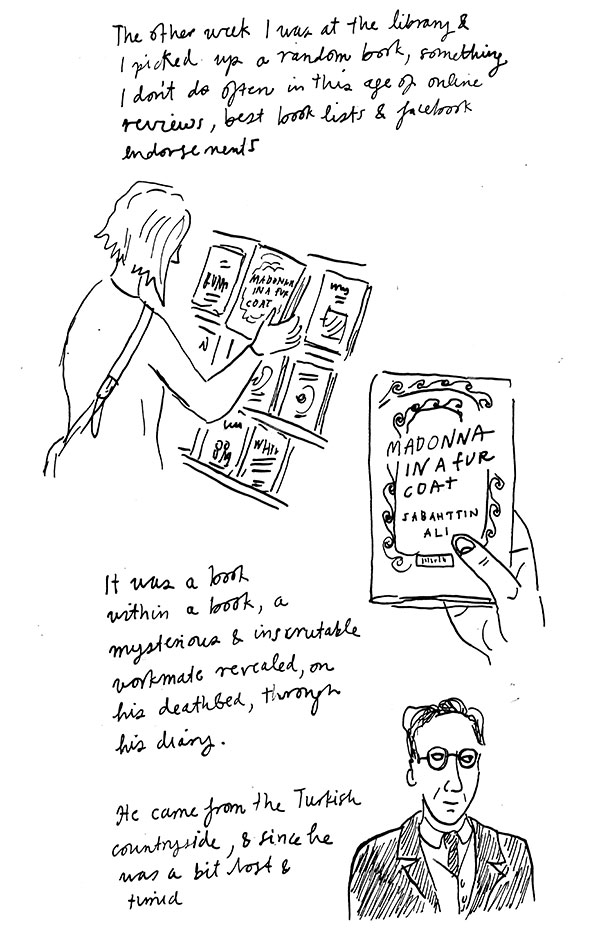 The other week I was at the library &
I picked up a random book, something
I don't do often in this age of online
reviews, best book lists & facebook
endorsements
MADONNA
IN A FUR
COAT
my
WHIT
MADONNA
IN A FUR
COAT
SABAHTTIN
ALI
It was a book
within a book, a
mysterious & inscrutable
workmate revealed, on
his deathbed, through
his diary.
He came from the Turkish
countryside, & since he
was a bit lost &
timid